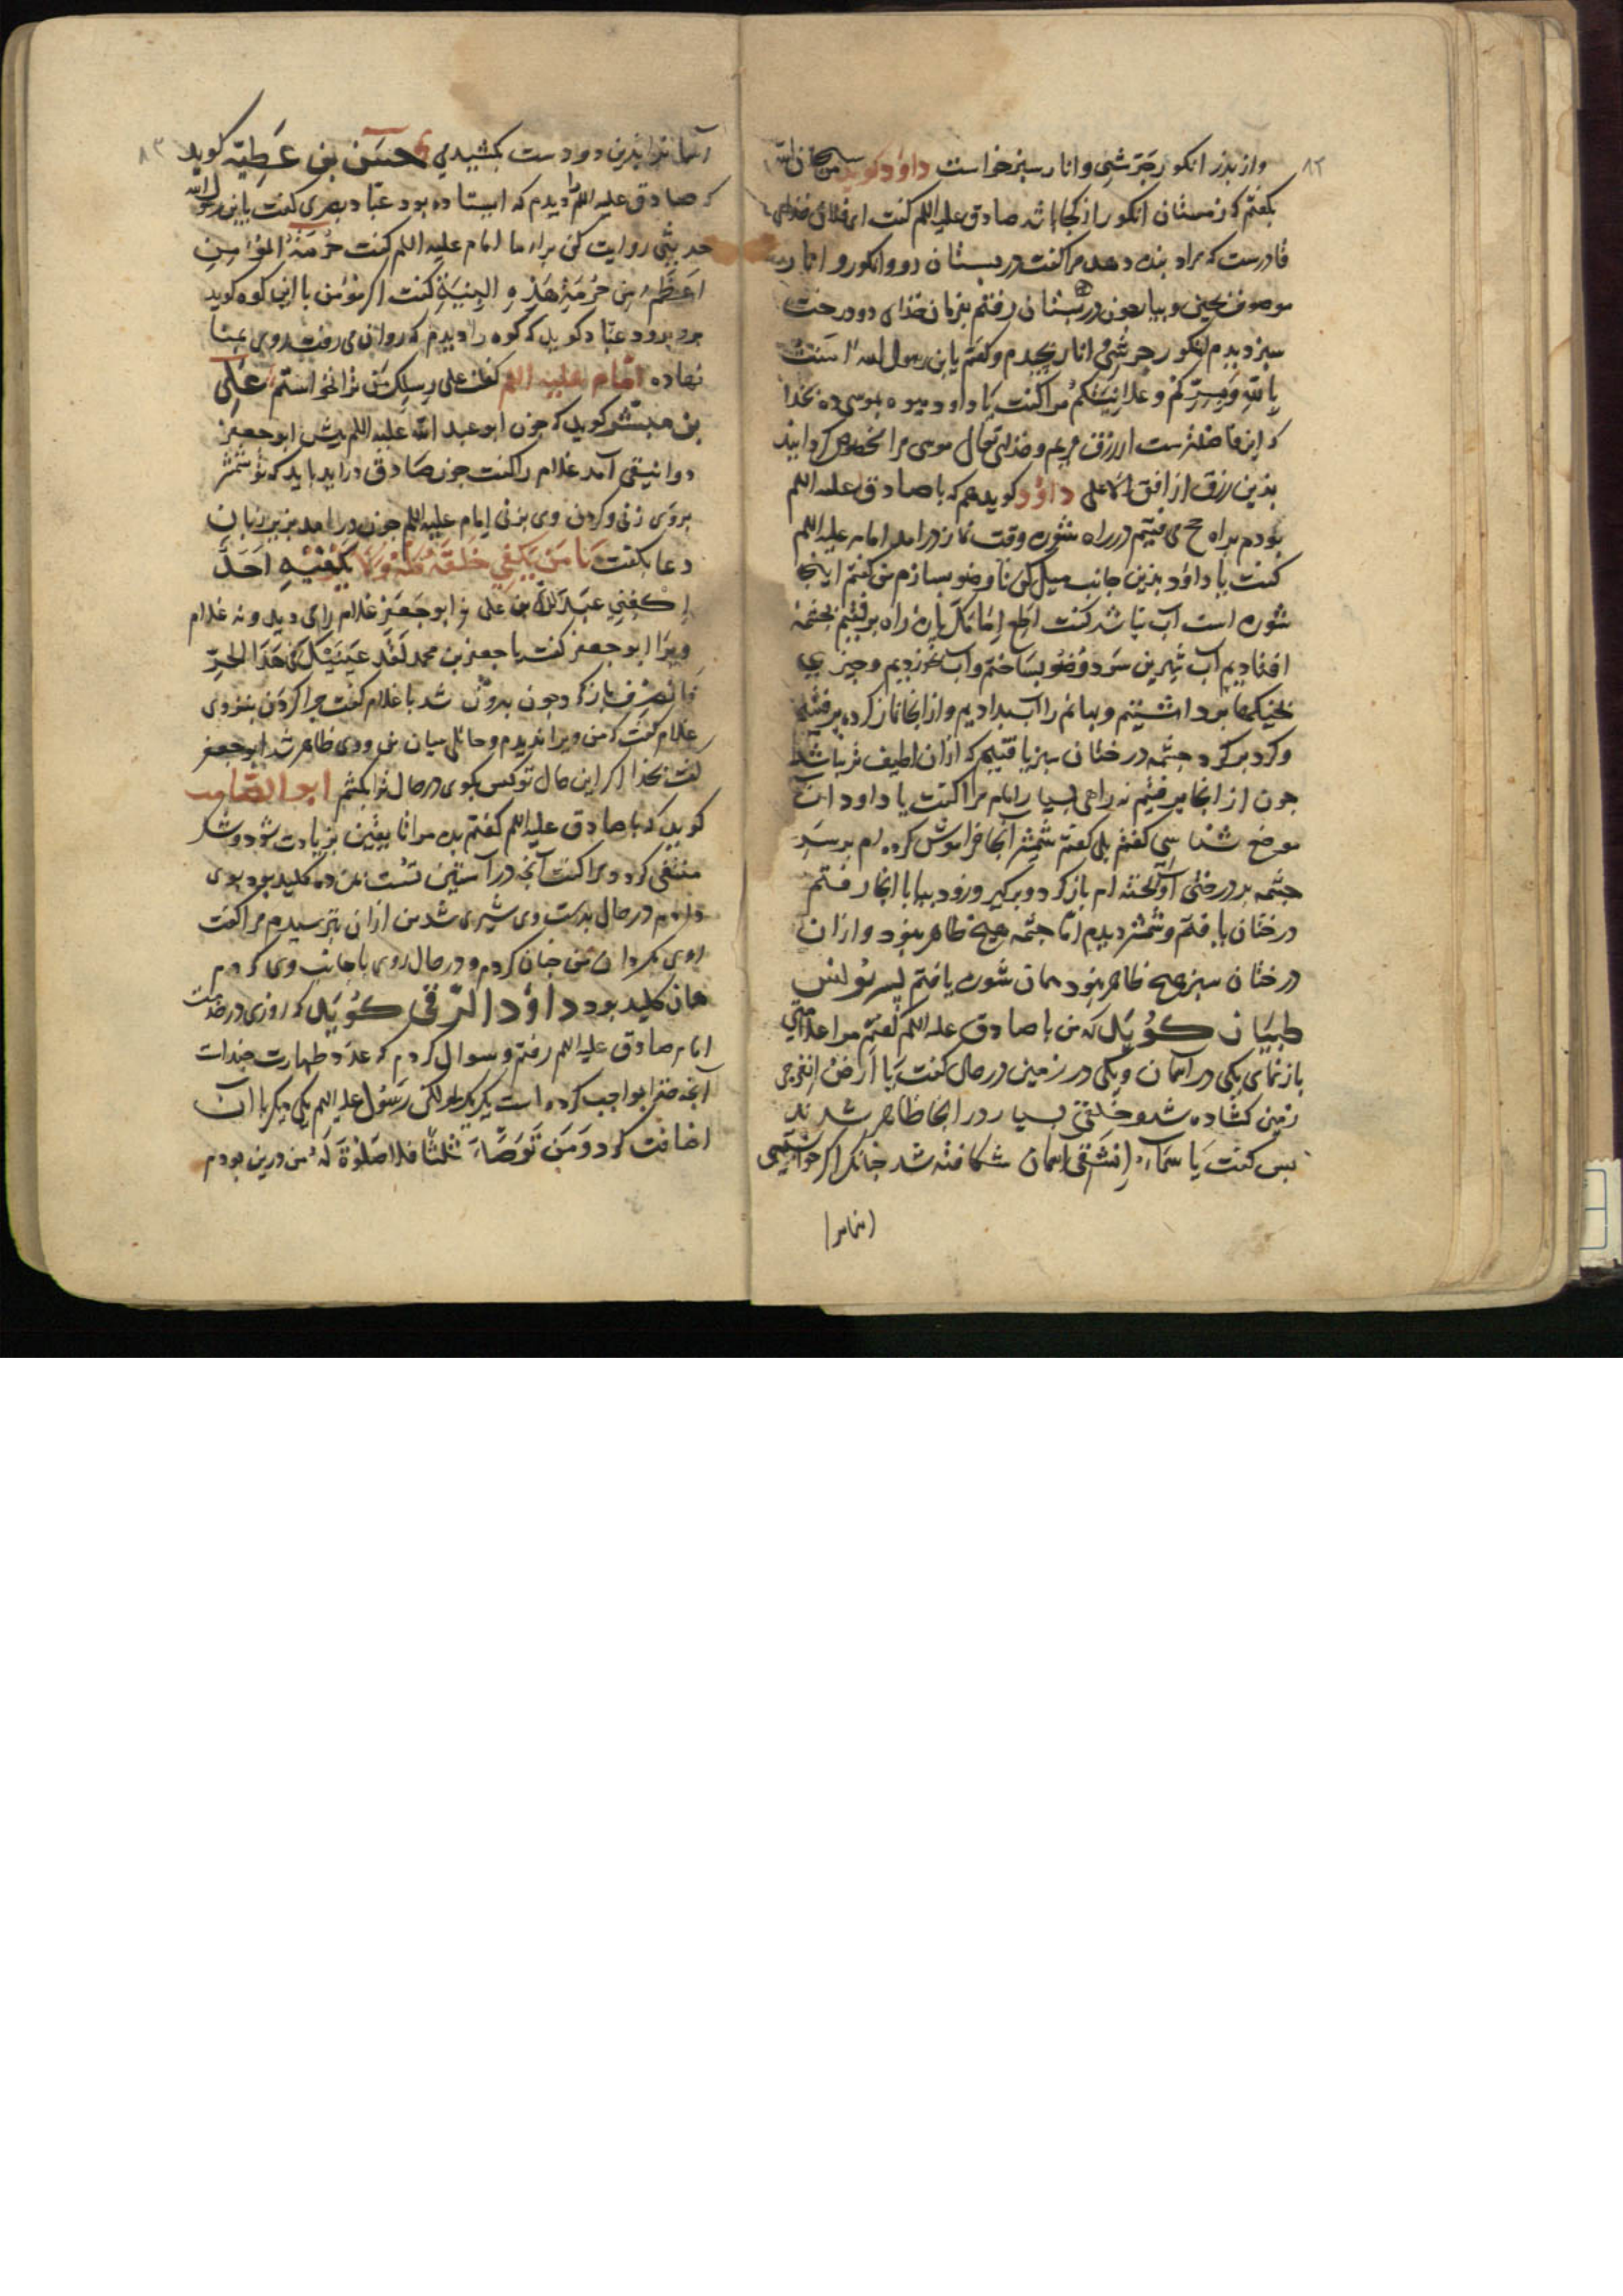 ۸۲
واز بذر انکور جرشی وانار سبز خواست داود کوید من سبحان الله
بکفتم که زمستان انکور از کجا باشد صادق علیه اللم کفت ای فلان خدای
قادرست که مراد بنده دهد مرا کفت در بستان رو وانکور و انار
موصوف بچین و بیار چون در بستان رفتم بفرمان خدای دو درخت
سبز دیدم انکور جرشی و انار بچیدم وکفتم یا بن رسول الله آمنت
بالله وبسرکم وعلانیتکم مرا کفت یا داود میوه بموسی ده بخدا
که این فاضلترست از رزق مریم وخدای تعالی موسی را مخصوص کردانید
بذین رزق از افق الاعلی داود کوید هم که با صادق علیه اللم
بودم براه حج می رفتیم در راه شوره وقت نماز درامد امام علیه اللم
کفت یا داود بذین جانب میل کن تا وضو بسازم من کفتم اینجا
شوره است آب نباشد کفت باره راه برفتیم بچشمه
افتادیم آب شیرین سرد وضو بساختم وآب بخوردیم وچیزی
بخیکها برداشتیم وبهایم را آب بدادیم واز آنجا نماز کرده برفتیم
وکرد بر کرد چشمه درختان سبز یافتیم که ازان لطیف تر نباشد
چون از آنجا برفتیم نه راهی بسیار امام مرا کفت یا داود ان
موضع شناسی کفتم بلی کفت شمشیر آنجا فراموش کرده ام بر سر
چشمه بر درختی آویخته ام باز کرد وبرکیر وزود بیا با آنجا رفتم
درختان یافتم وشمشیر دیدم اما چشمه هیچ ظاهر نبود وازان
درختان سبز هیچ ظاهر نبود همان شوره یافتم پسر یونس
طبیان کوید که من با صادق علیه اللم کفتم مرا علامتی
بازنمای یکی در آسمان ویکی در زمین در حال کفت یا ارض انفرجی
زمین کشاده شد وخلقی بسیار در انجا ظاهر شدند
پس کفت یا سماء انشقی آسمان شکافته شد چنانکه اکر خواستیمی
۸۳
آسمان را بذین دو دست بکشیدمی حسن بن عطیه کوید
که صادق علیه اللم را دیدم که ایستاده بود عباد بصری کفت یا بن رسول الله
حدیثی روایت کن برای ما امام علیه اللم کفت حرمة المؤمن
اعظم من حرمة هذه البنیة کفت اکر مؤمن با این کوه کوید
برو برود عباد کوید که کوه را دیدم که روان می رفت روی بما
نهاده امام علیه اللم کفت علی رسلک من ترا نخواستم علی
بن مبشر کوید که چون ابو عبد الله علیه اللم پیش ابو جعفر
دوانیقی آمد غلام را کفت چون صادق دراید باید که تو شمشیر
بروی زنی وکردن وی بزنی امام علیه اللم چون درامد بزیر زبان
دعا بکفت یا من یکفی خلقه کله ولا یکفیه احد
اکفنی عبد الله بن علی ابو جعفر غلام را می دید ونه غلام
ویرا ابو جعفر کفت یا جعفر بن محمد لقد عنیتک فی هذا الحر
فانصرف باز کرد چون بیرون شد با غلام کفت چرا کردن نزدی
غلام کفت که من ویرا ندیدم وحائلی میان من ووی ظاهر شد ابو جعفر
کفت بخدا اکر این حال توکس بکوی در حال ترا بکشم ابو الصامت
کوید که با صادق علیه اللم کفتم بده مرا تا یقین بزیادت شود وشک
منتفی کردد مرا کفت آنچه در آستین تست بمن ده کلید بود بوی
دادم در حال بدست وی شیری شد من ازان بترسیدم مرا کفت
روی بکردان من چنان کردم ودر حال روی با جانب وی کردم
همان کلید بود داود الرقی کوید که روزی در خدمت
امام صادق علیه اللم رفتم وسوال کردم که عدد طهارت چندات
آنچه خدا واجب کرده است یکی یکی ولکن رسول علیه اللم یکی دیکر با آن
اضافت کرد ومن توضاء ثلثا فلا صلوة له من درین بودم